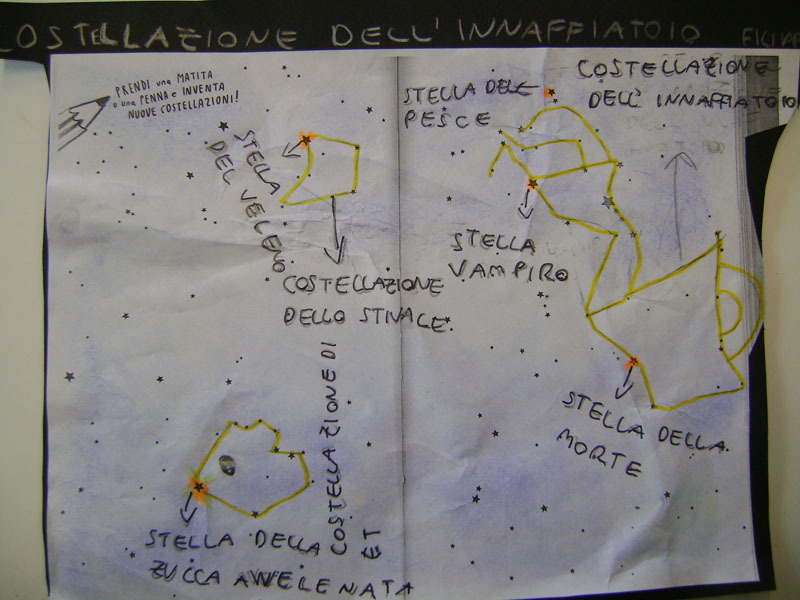 COSTELLAZIONE DELL'INNAFFIATOIO
PRENDI una MATITA
o una PENNA e INVENTA
NUOVE COSTELLAZIONI!
STELLA
DEL VELENO
COSTELLAZIONE
DELLO STIVALE
COSTELLAZIONE DI
ET
STELLA DELLA
ZUCCA AVVELENATA
STELLA DEL
PESCE
COSTELLAZIONE
DELL'INNAFFIATOIO
STELLA
VAMPIRO
STELLA DELLA
MORTE